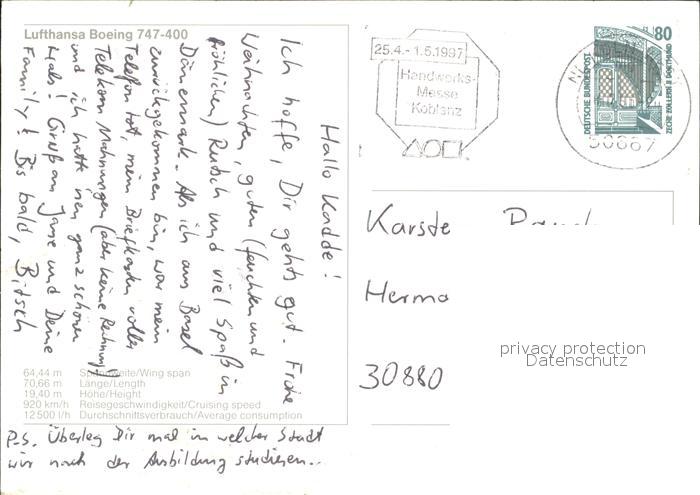 Lufthansa Boeing 747-400
Hallo Kadde!
Ich hoffe, Dir geht's gut. Frohe
Weihnachten, guten (feuchten und
fröhlichen) Rutsch und viel Spaß in
Dänemark. Als ich aus Basel
zurückgekommen bin, war mein
Telefon tot, mein Briefkasten voller
Telekom Mahnungen (aber keine Rechnung)
und ich hatte nen ganz schönen
Hals! Gruß an Jane und Deine
Family! Bis bald, Bitsch
64,44 m Spannweite/Wing span
70,66 m Länge/Length
19,40 m Höhe/Height
920 km/h Reisegeschwindigkeit/Cruising speed
12 500 l/h Durchschnittsverbrauch/Average consumption
P.S. Überleg Dir mal in welcher Stadt
wir nach der Ausbildung studieren...
25.4.- 1.5.1997
Handwerks-
Messe
Koblenz
80
DEUTSCHE BUNDESPOST
ZECHE ZOLLERN II DORTMUND
50667
Karste
Herma
30880
privacy protection
Datenschutz